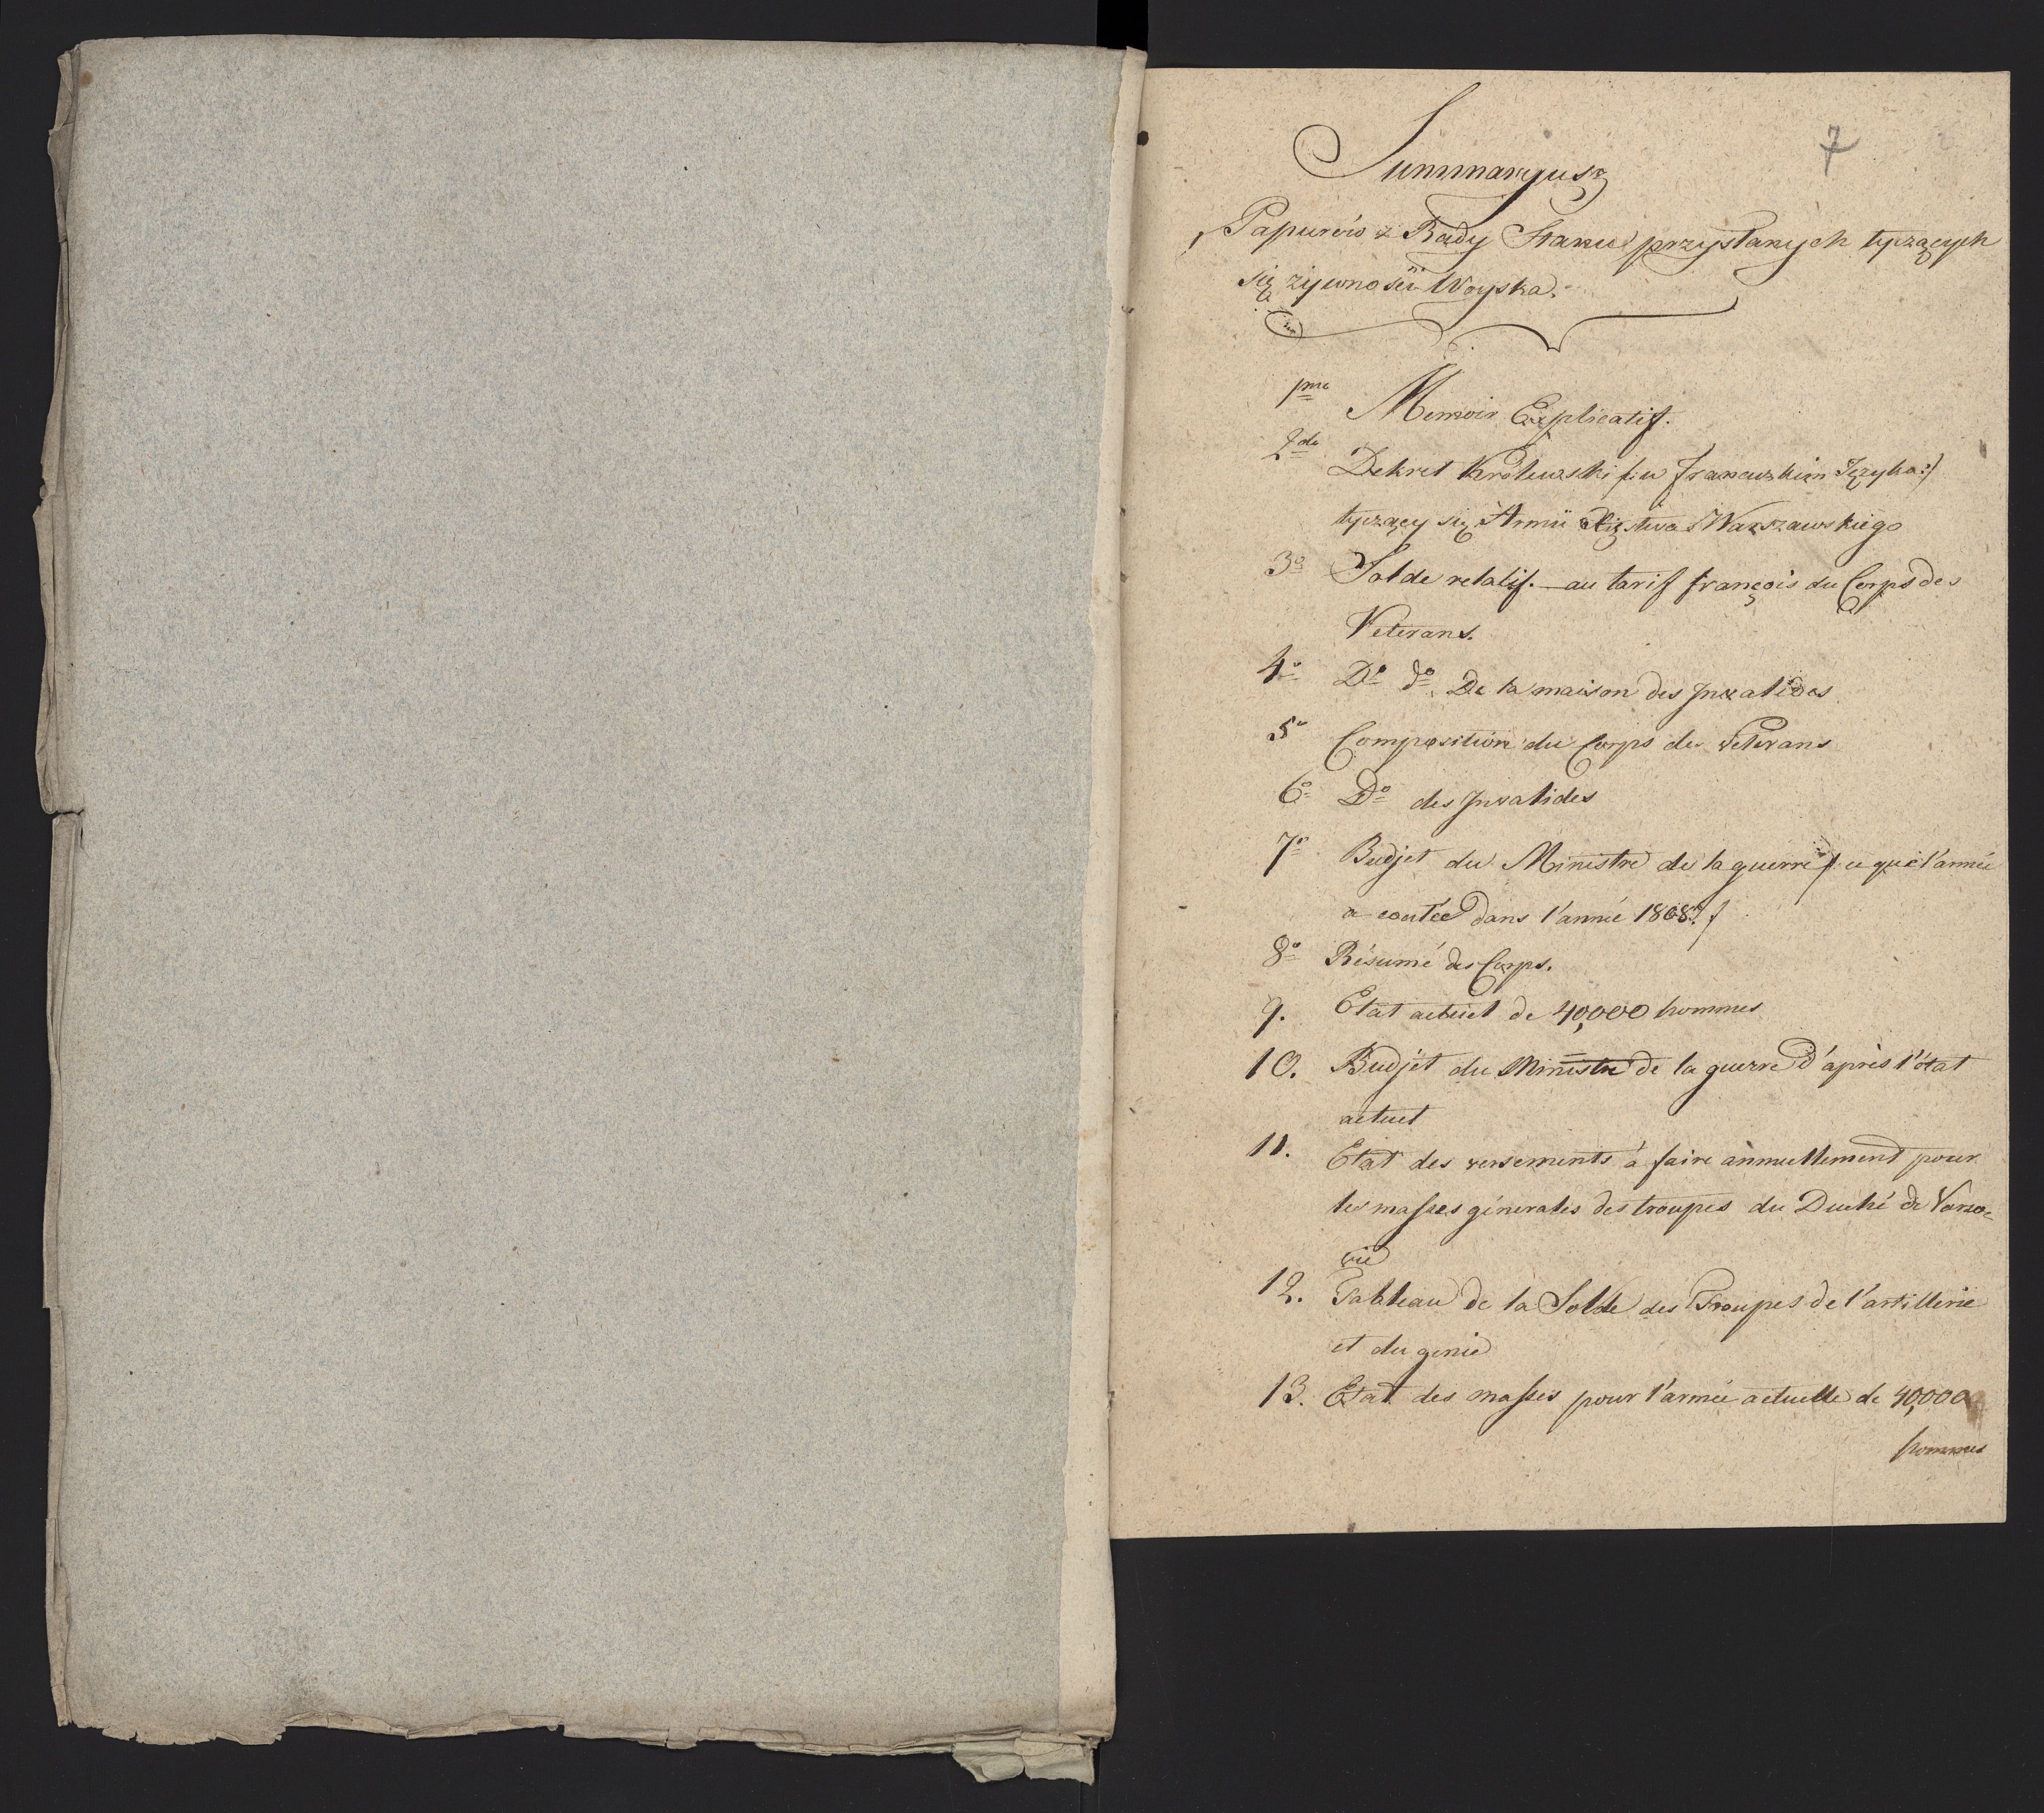 7
Summaryusz
Papierów z Rady Stanu przysłanych tyczących
się żywności Woyska.
1me Memoir Explicatif.
2do Dekret Królewski /:w francuzkim Języku:/
tyczący się Armii Xięstwa Warszawskiego
3o Solde relatif. au tarif françois du Corps des
Veterans.
4o Do do De la maison des Invalides
5o Composition du Corps des Veterans
6o Do des Invalides
7o Budjet du Ministre de la guerre /: ce que l'armée
a coutée dans l'année 1808:/
8o Résumé des Corps.
9. Etat actuel de 40,000 hommes
10. Budjet du Ministre de la guerre d'après l'état
actuel
11. Etat des versements à faire annuellement pour
les masses générales des troupes du Duché de Varso-
vie
12. Tableau de la Solde des Troupes de l'artillerie
et du genie
13. Etat des masses pour l'armée actuelle de 40,000
hommes